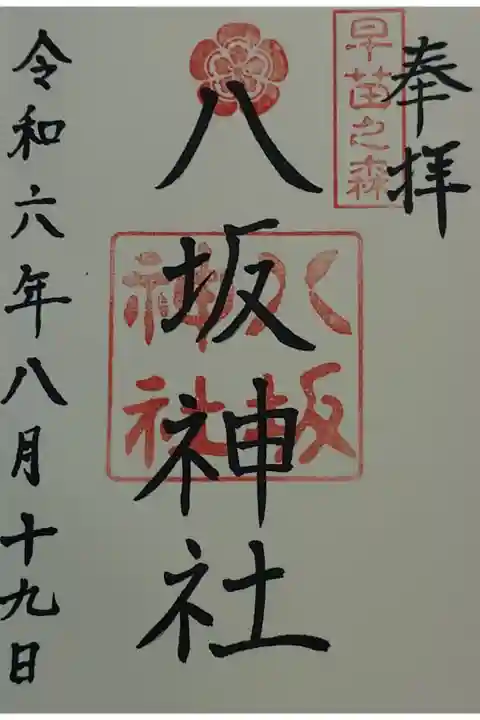 奉拝
早苗之森
八坂神社
八坂神社
令和六年八月十九日